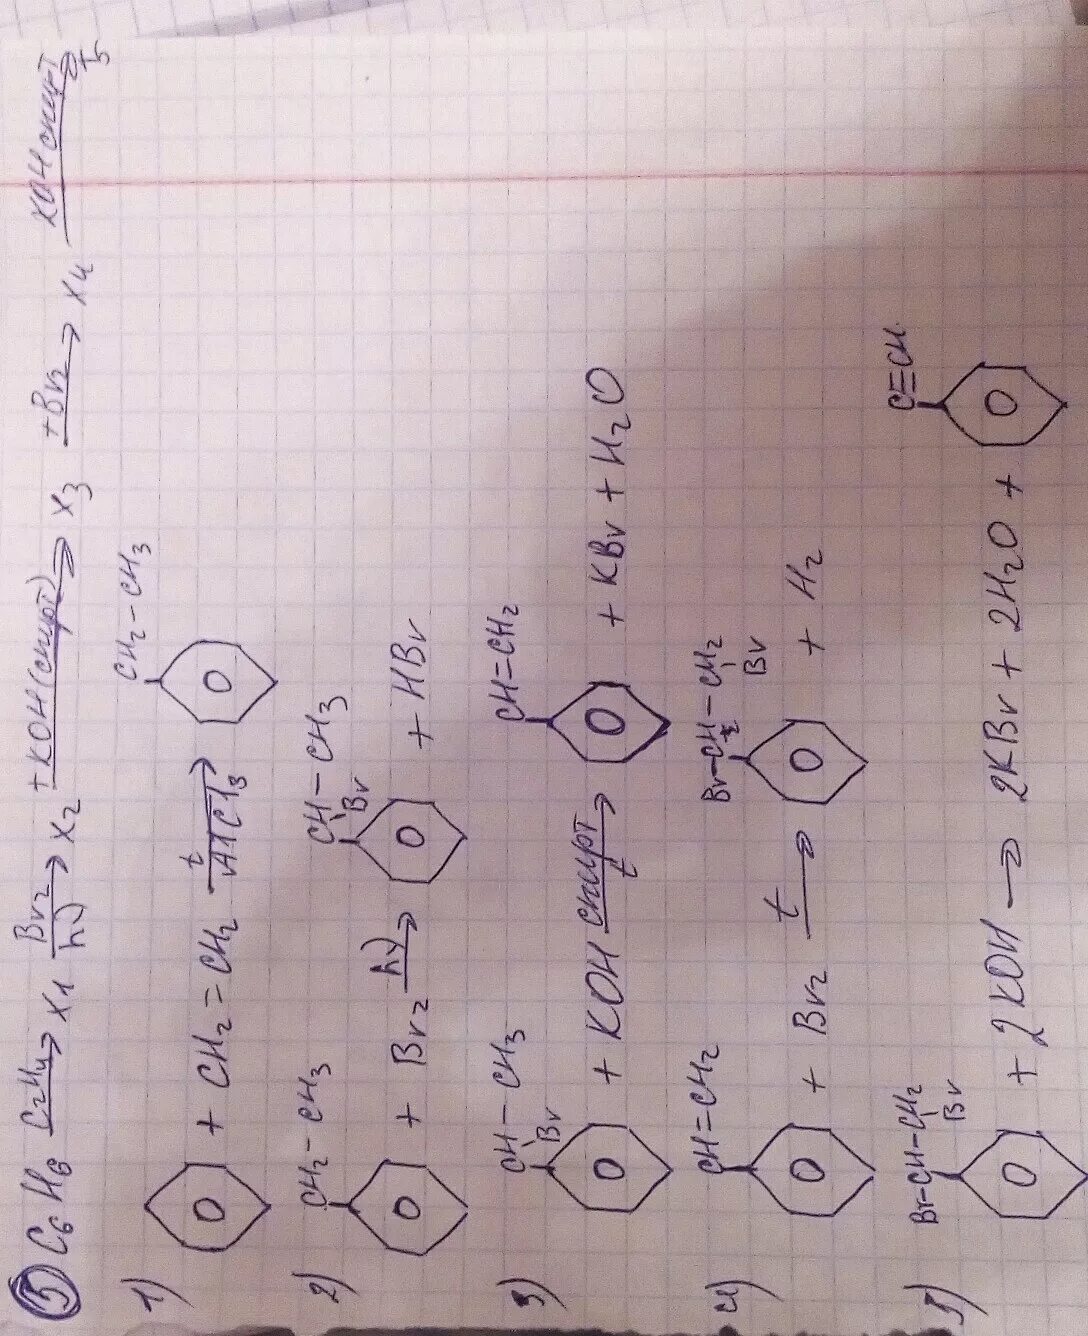 5 C6H6 C2H4→ X1 Br2/hν→ X2 +KOH(спирт)→ X3 +Br2→ X4 KOH спирт/t→ 5
1) + CH2=CH2 t/AlCl3→ CH2-CH3
2) CH2-CH3 + Br2 hν→ CH-CH3 Br + HBr
3) CH-CH3 Br + KOH спирт/t→ CH=CH2 + KBr + H2O
4) CH=CH2 + Br2 t→ Br-CH-CH2 Br + H2
5) Br-CH-CH2 Br + 2KOH → 2KBr + 2H2O + C≡CH